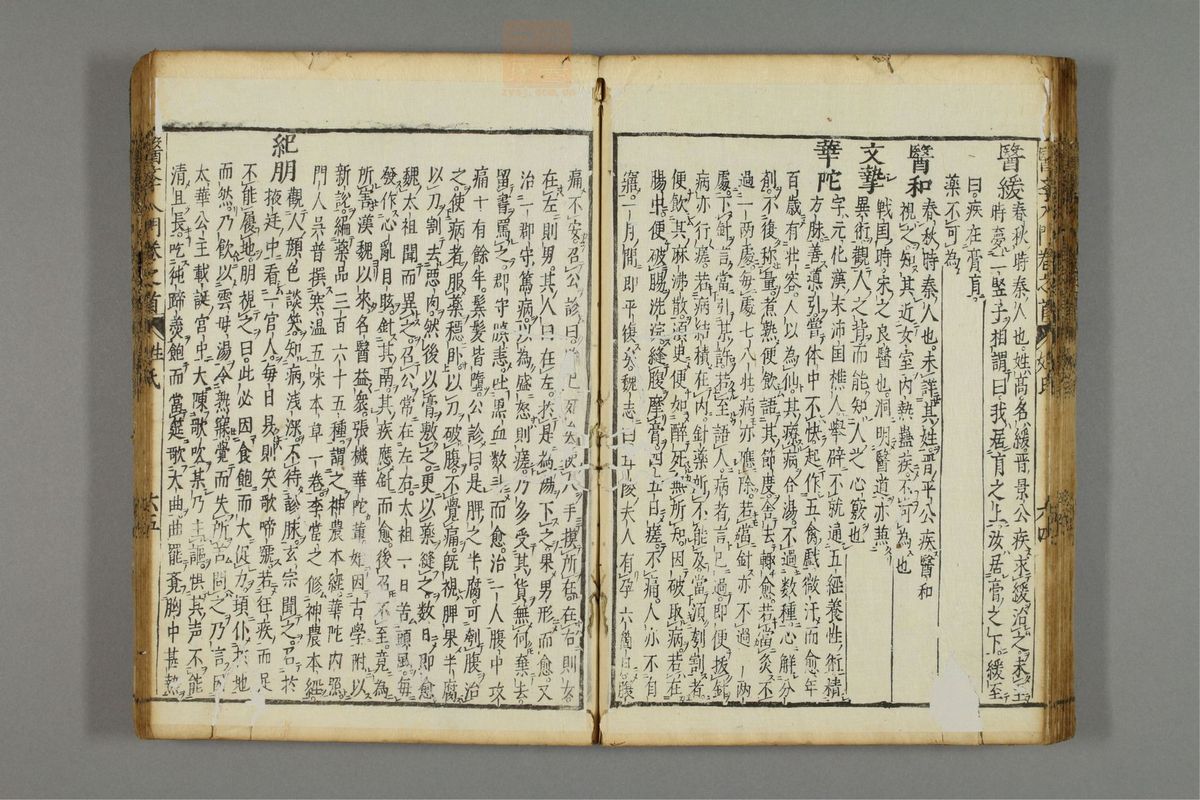 醫緩
春秋時秦人也姓高名緩晋景公疾求緩治之未至
時夢二竪子相謂曰我居肓之上汝居膏之下緩至
曰疾在膏肓
藥不可為
醫和
春秋時秦人也未詳其姓晋平公疾醫和
視之知其近女室内熱蠱疾不可為也
文摯
戦国時宋之良醫也洞明醫道亦兼
異術觀人之背而能知人之心竅也
華陀
字元化漢末沛国樵人擧辟不就通五經養性術精
方脉善導引嘗体中不快起作五禽戲微汗而愈年
百歳有壮容人以為仙其療病合湯不過数種心解分
劑不後称量煮熟便飲語其節度舎去輙愈若當灸不
過一両處毎處七八壮病亦應除若當針亦不過一両
處下針言當引某許若至語人病者言已過即便拔針
病亦行瘥若病結積在内針薬所不能及當須刳割者
便飲其麻沸散須臾便如醉死無所知因破取病若在
腸中便破腸洗浣縫腹摩膏四五日瘥不痛人亦不自
寤一月間即平復矣魏志曰甘陵夫人有孕六箇月腹
痛不安召公診曰胎已死矣使人手摸所在在右則女
在左則男其人曰在左於是為湯下之果男形而愈又
治一郡守篤病以為盛怒則瘥乃多受其貨無何棄去
留書罵之郡守瞋恚吐黒血数斗而愈治一人腹中攻
痛十有餘年鬚髪皆墮公診曰是脾之半腐可刳腹治
之使病者服薬穏卧以刀破腹不覺痛既視脾果半腐
以刀割去悪肉然後以膏敷之更以薬縫之数日即愈
魏太祖聞而異之召公常在左右太祖一日苦頭風毎
發作心亂目眩針其鬲其疾應針而愈後召不至竟為
所害漢魏以来名醫益衆張機華陀輩始因古學附以
新説編薬品三百六十五種謂之神農本經華陀内照
門人呉普撰寒温五味本草一卷李當之修神農本經
紀朋
觀人顔色談笑知病浅深不待診脉玄宗聞之召於
掖廷中看一宮人毎日昃則笑歌啼號若狂疾而足
不能履地朋視之曰此必因食飽而大促力頓仆於地
而然乃飲以雲母湯令熟寐覺而失所苦問之乃言因
太華公主載誕宮中大陳歌吹某乃主謳惧其声不能
清且長吃㹠蹄羹飽而當筵歌大曲曲罷竟胸中甚熱
醫學入門卷之首 姓氏 六四
醫學入門卷之首 姓氏 六五